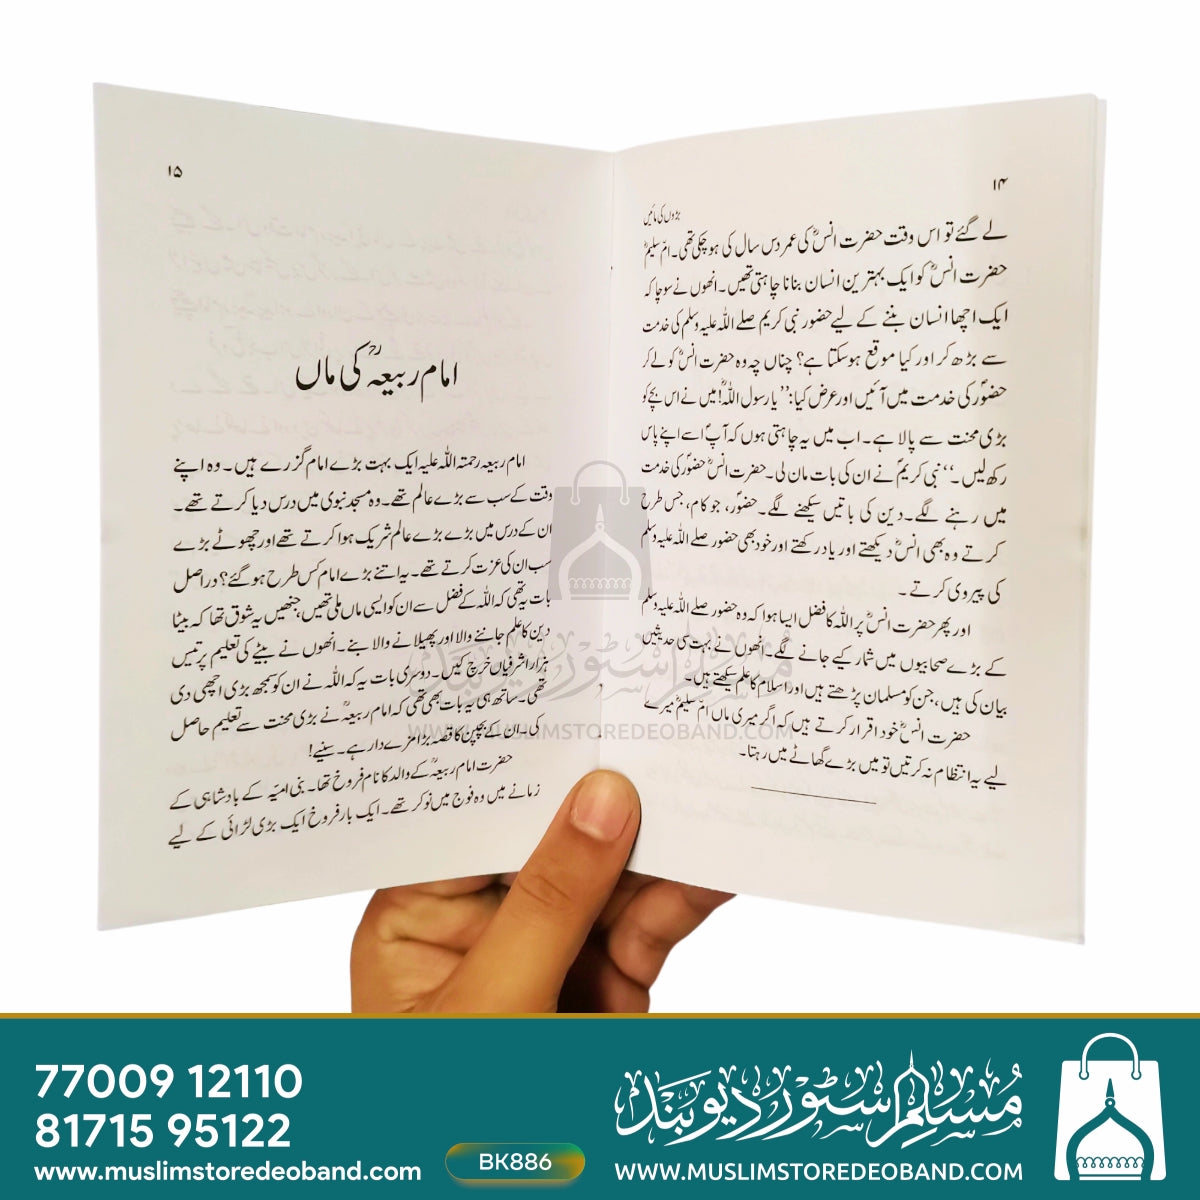 ۱۴
بڑوں کی مائیں
لے گئے تو اس وقت حضرت انسؓ کی عمر دس سال کی ہو چکی تھی۔ ام سلیمؓ
حضرت انسؓ کو ایک بہترین انسان بنانا چاہتی تھیں۔ انھوں نے سوچا کہ
ایک اچھا انسان بننے کے لیے حضور نبی کریم صلے اللہ علیہ وسلم کی خدمت
سے بڑھ کر اور کیا موقع ہو سکتا ہے؟ چناں چہ وہ حضرت انسؓ کو لے کر
حضورؐ کی خدمت میں آئیں اور عرض کیا: ”یا رسول اللہؐ! میں نے اس بچے کو
بڑی محنت سے پالا ہے۔ اب میں یہ چاہتی ہوں کہ آپؐ اسے اپنے پاس
رکھ لیں۔“ نبی کریمؐ نے ان کی بات مان لی۔ حضرت انسؓ حضورؐ کی خدمت
میں رہنے لگے۔ دین کی باتیں سیکھنے لگے۔ حضورؐ، جو کام، جس طرح
کرتے وہ بھی انسؓ دیکھتے اور یاد رکھتے اور خود بھی حضور صلے اللہ علیہ وسلم
کی پیروی کرتے۔
اور پھر حضرت انسؓ پر اللہ کا فضل ایسا ہوا کہ وہ حضور صلے اللہ علیہ وسلم
کے بڑے صحابیوں میں شمار کیے جانے لگے۔ انھوں نے بہت سی حدیثیں
بیان کی ہیں، جن کو مسلمان پڑھتے ہیں اور اسلام کا علم سیکھتے ہیں۔
حضرت انسؓ خود اقرار کرتے ہیں کہ اگر میری ماں ام سلیمؓ میرے
لیے یہ انتظام نہ کرتیں تو میں بڑے گھاٹے میں رہتا۔
۱۵
امام ربیعہؒ کی ماں
امام ربیعہ رحمتہ اللہ علیہ ایک بہت بڑے امام گزرے ہیں۔ وہ اپنے
وقت کے سب سے بڑے عالم تھے۔ وہ مسجد نبوی میں درس دیا کرتے تھے۔
ان کے درس میں بڑے بڑے عالم شریک ہوا کرتے تھے اور چھوٹے بڑے
سب ان کی عزت کرتے تھے۔ یہ اتنے بڑے امام کس طرح ہو گئے؟ دراصل
بات یہ تھی کہ اللہ کے فضل سے ان کو ایسی ماں ملی تھیں، جنھیں یہ شوق تھا کہ بیٹا
دین کا علم جاننے والا اور پھیلانے والا بنے۔ انھوں نے بیٹے کی تعلیم پر تیس
ہزار اشرفیاں خرچ کیں۔ دوسری بات یہ کہ اللہ نے ان کو سمجھ بڑی اچھی دی
تھی۔ ساتھ ہی یہ بات بھی تھی کہ امام ربیعہؒ نے بڑی محنت سے تعلیم حاصل
کی۔ ان کے بچپن کا قصہ بڑا مزے دار ہے۔ سنیے!
حضرت امام ربیعہؒ کے والد کا نام فروخ تھا۔ بنی امیّہ کے بادشاہی کے
زمانے میں وہ فوج میں نوکر تھے۔ ایک بار فروخ ایک بڑی لڑائی کے لیے
مسلم سٹور دیوبند
WWW.MUSLIMSTOREDEOBAND.COM
77009 12110
81715 95122
www.muslimstoredeoband.com
BK886
مسلم سٹور دیوبند
WWW.MUSLIMSTOREDEOBAND.COM